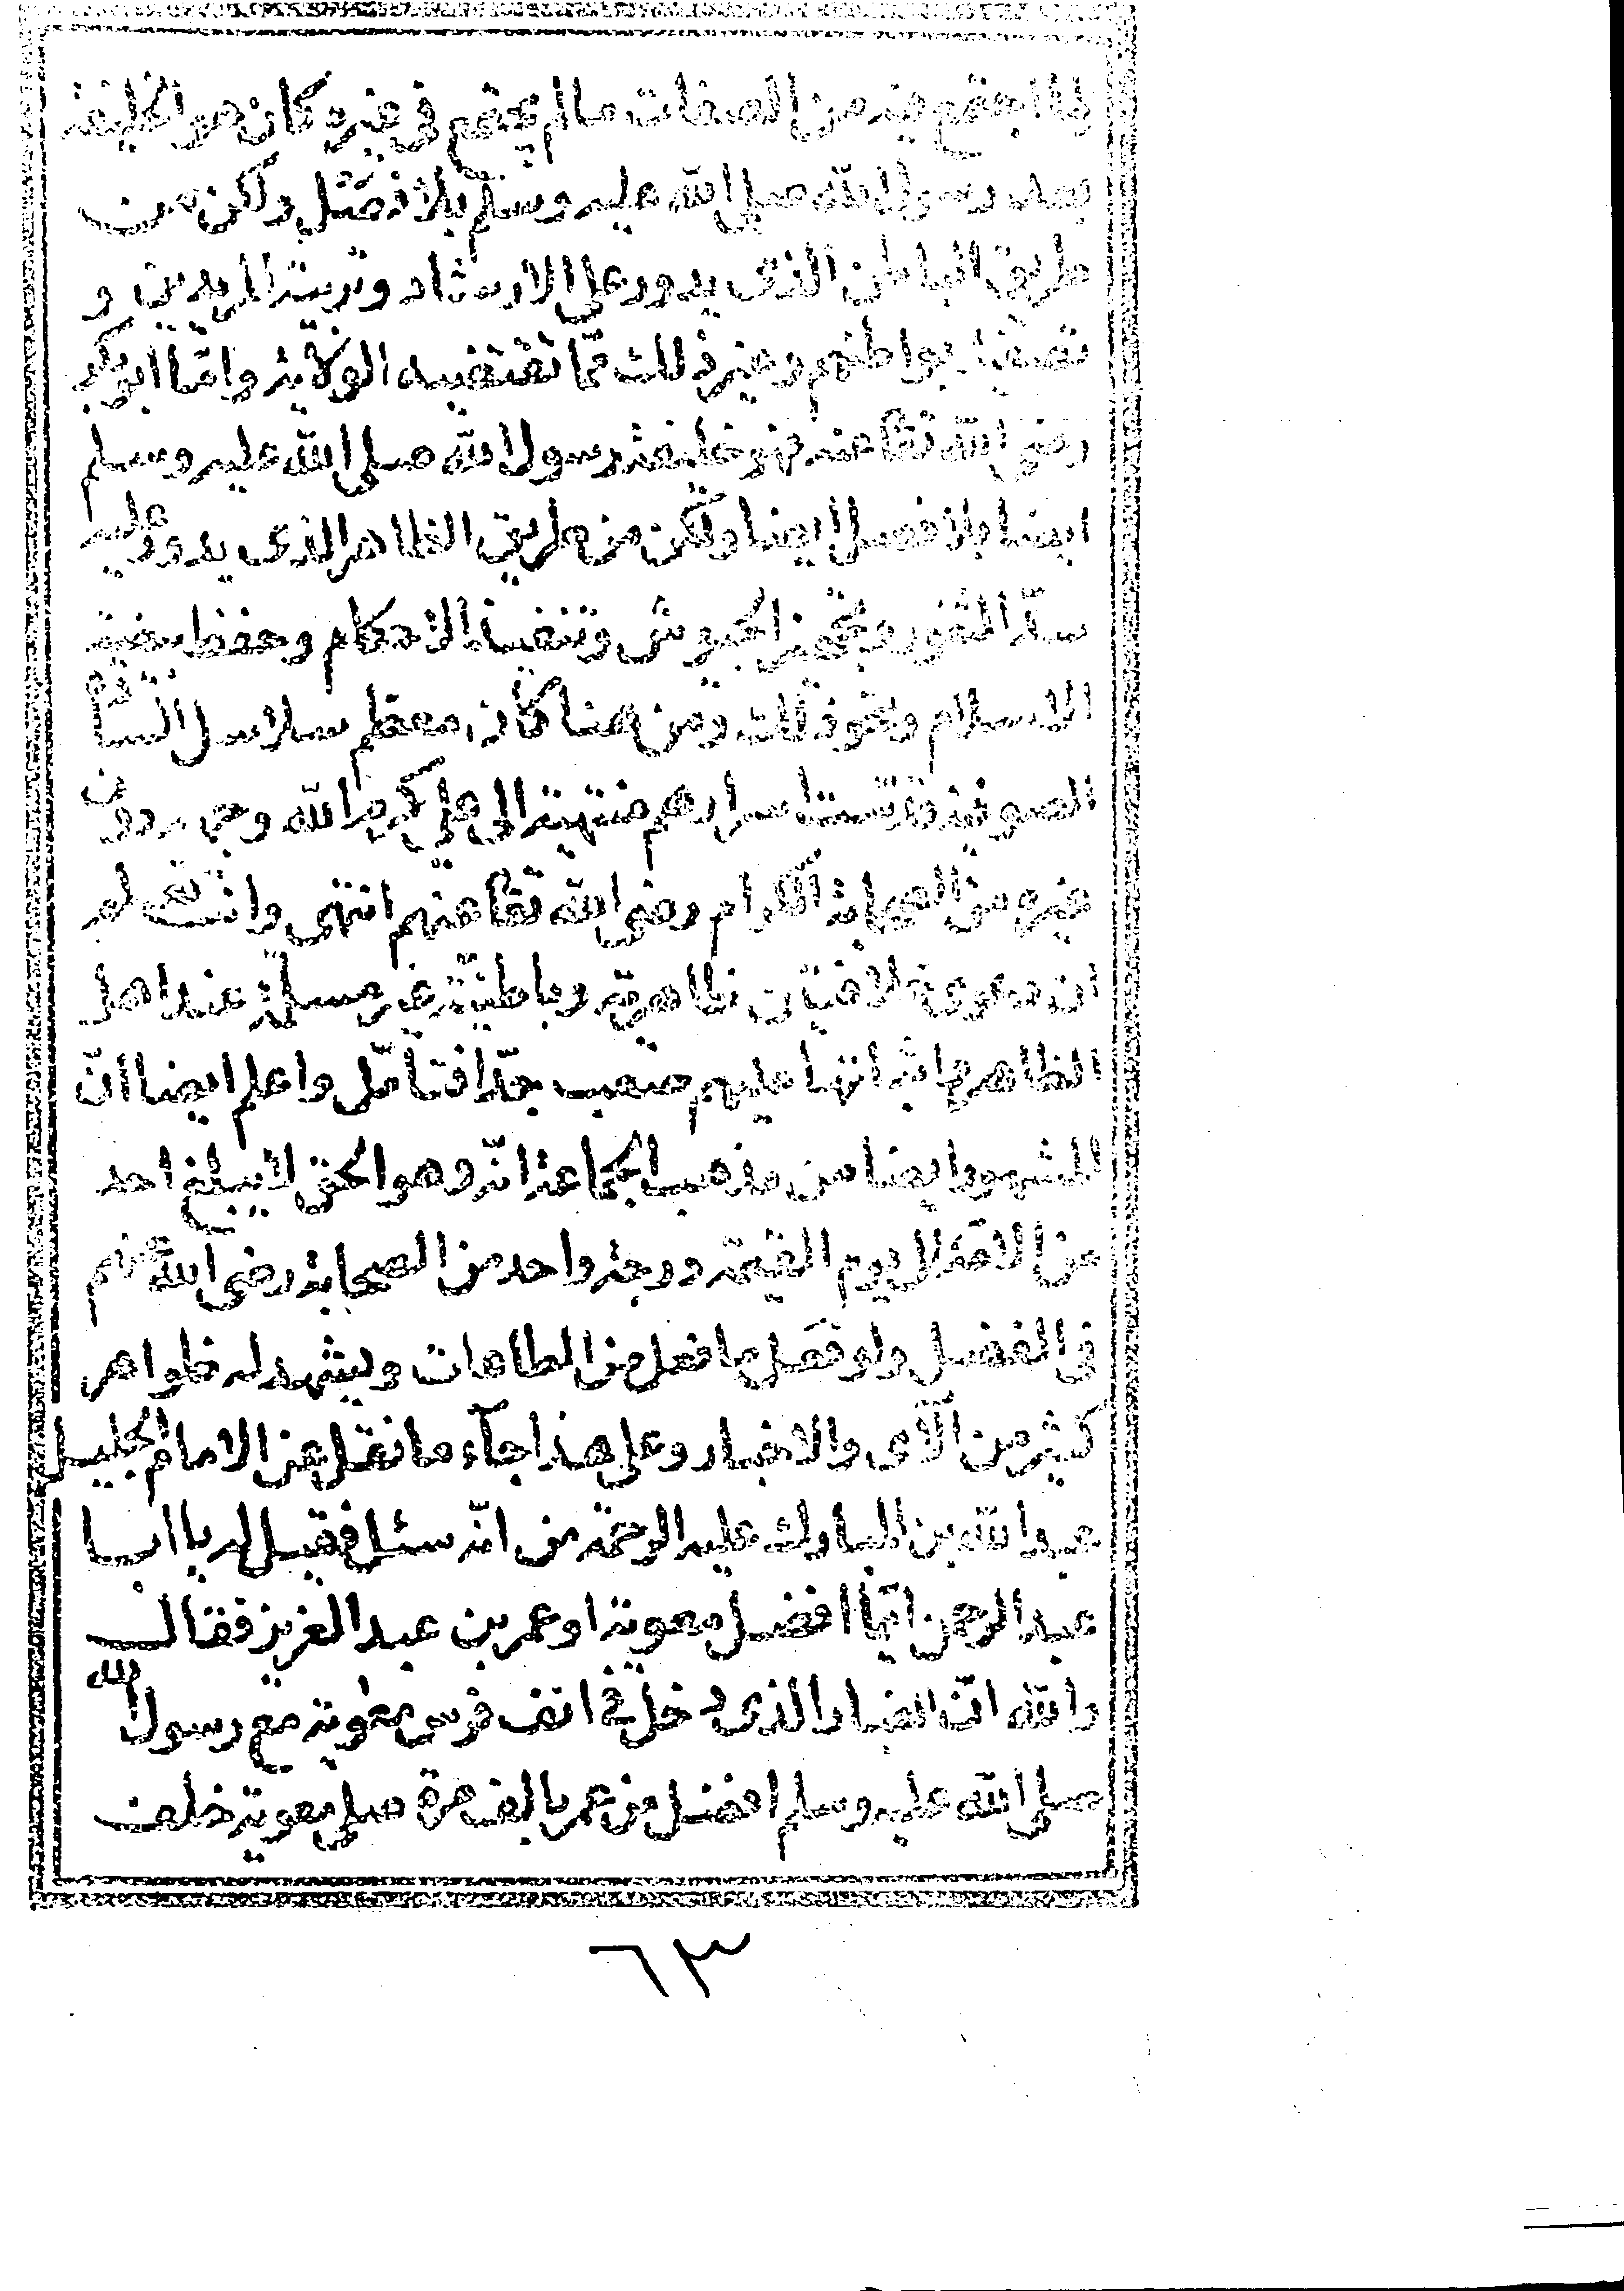 لما اجتمع فيه من الصفات مالم يجتمع في غيره كان هو الخليفة
بعد رسول الله صلى الله عليه وسلم بلا فصل ولكن من
طريق الباطن الذى يدور على الارشاد وتربية المريدين و
تصفية بواطنهم وغير ذلك مما تقتضيه الولاية واما ابوبكر
رضى الله تعا عنه فهو خليفة رسول الله صلى الله عليه وسلم
ايضا بلا فصل ايضا ولكن من طريق الظاهر الذى يدور عليه
سد الثغور وتجهيز الجيوش وتنفيذ الاحكام وحفظ بيضة
الاسلام ونحو ذلك ومن هنا كان معظم سلاسل السادة
الصوفية قدست اسرارهم منتهية الى علي كرم الله وجهه دون
غيره من الصحابة الكرام رضى الله تعا عنهم انتهى وانت تعلم
ان دعوى خلافتين ظاهرية وباطنية غير مسلم عند اهل
الظاهر واثباتها عليهم صعب جدّا فتأمّل واعلم ايضا انّ
المشهور ايضا من مذهب الجماعة انّه وهو الحق لا يبلغ احد
من الامة الى يوم القيمة درجة واحد من الصحابة رضى الله عنهم
فى الفضل ولو فعل ما فعل من الطاعات ويشهد له ظواهر
كثير من الآى والاخبار وعلى هذا جآء ما نقل عن الامام الجليل
عبد الله بن المبارك عليه الرحمة من انّه سئل فقيل له يا ابا
عبد الرحمن ايّما افضل معوية او عمر بن عبد العزيز فقال
والله انّ الغبار الذى دخل فى انف فرس معوية مع رسول الله
صلى الله عليه وسلم افضل من عمر بالف مرة صلى معوية خلف
٦٣